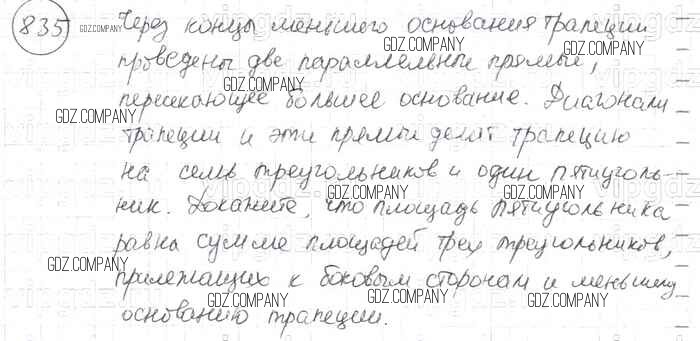 835 Через концы меньшего основания трапеции
GDZ.COMPANY
GDZ.COMPANY
проведены две параллельные прямые,
GDZ.COMPANY
пересекающее большее основание. Диагонали
GDZ.COMPANY
GDZ.COMPANY
трапеции и эти прямые делят трапецию
GDZ.COMPANY
на семь треугольников и один пятиуголь-
GDZ.COMPANY
GDZ.COMPANY
ник. Докажите, что площадь пятиугольника
GDZ.COMPANY
равна сумме площадей трех треугольников,
GDZ.COMPANY
прилежащих к боковым сторонам и меньшему
GDZ.COMPANY
GDZ.COMPANY
GDZ.COMPANY
основанию трапеции.